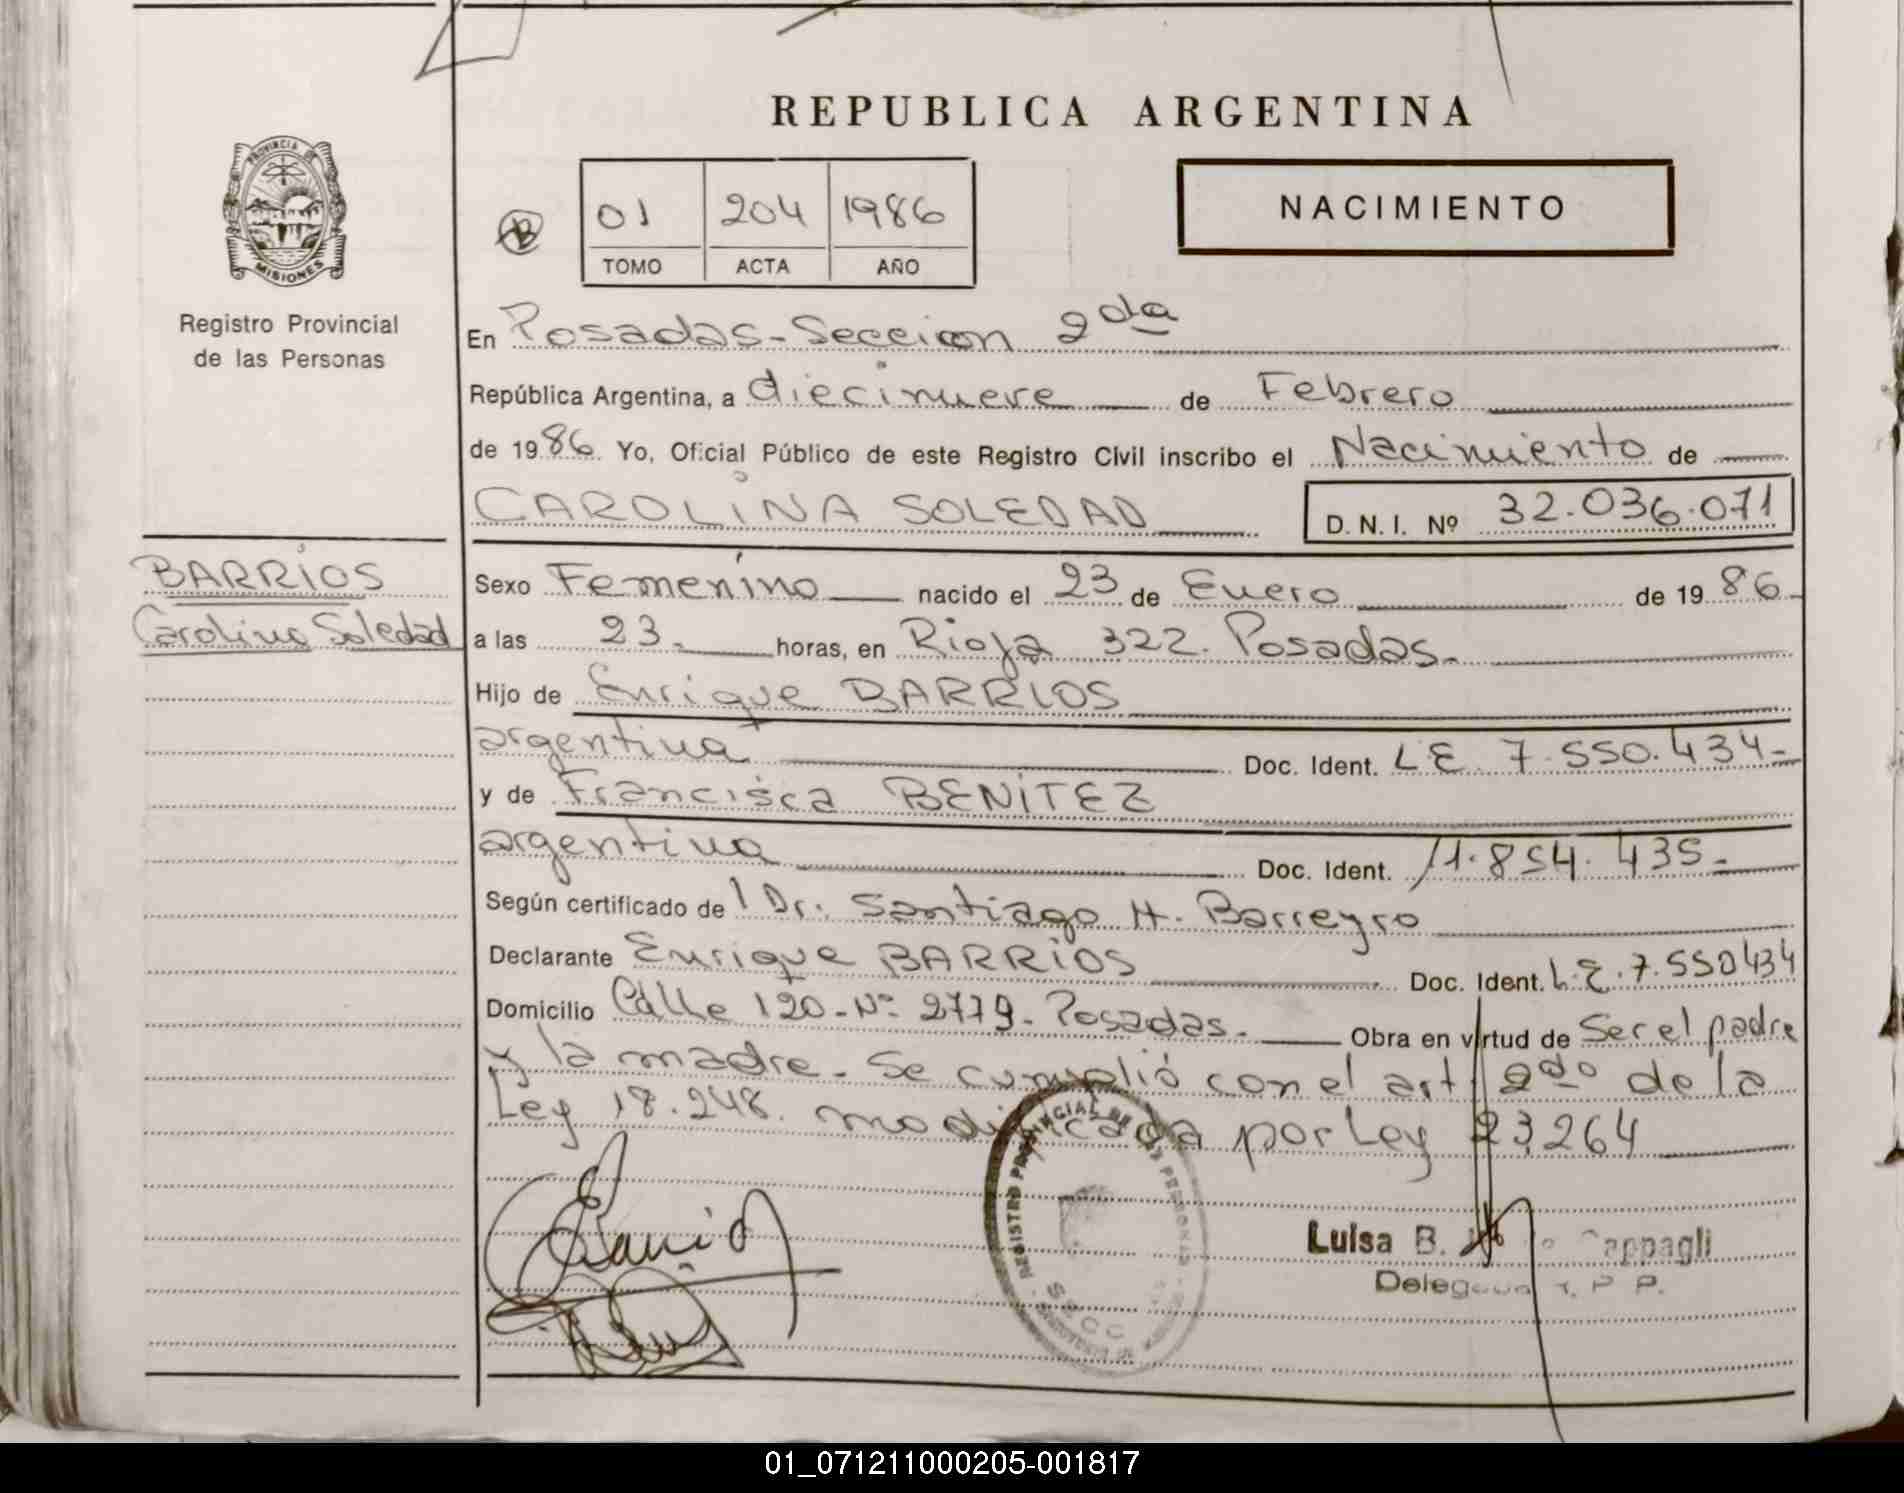 REPUBLICA ARGENTINA
PROVINCIA DE
MISIONES
Registro Provincial
de las Personas
B
01 204 1986
TOMO ACTA AÑO
NACIMIENTO
En Posadas-Seccion 2da
República Argentina, a diecinueve de Febrero
de 1986 Yo, Oficial Público de este Registro Civil inscribo el Nacimiento de
CAROLINA SOLEDAD D. N. I. Nº 32.036.071
BARRIOS
Carolina Soledad
Sexo Femenino nacido el 23 de Enero de 1986
a las 23 horas, en Rioja 322. Posadas.
Hijo de Enrique BARRIOS
argentina Doc. Ident. L.E. 7.550.434-
y de Francisca BENITEZ
argentina Doc. Ident. 11.854.435-
Según certificado del Dr. Santiago H. Barreyro
Declarante Enrique BARRIOS Doc. Ident. L.E. 7.550434
Domicilio Calle 120-Nº 2779- Posadas. Obra en virtud de Ser el padre
y la madre- Se cumplió con el art. 2do de la
Ley 18.248. modificada por Ley 23.264
REGISTRO PROVINCIAL DE LAS PERSONAS
SECC
Luisa B. Cappagli
Delegada R. P. P.
01_071211000205-001817